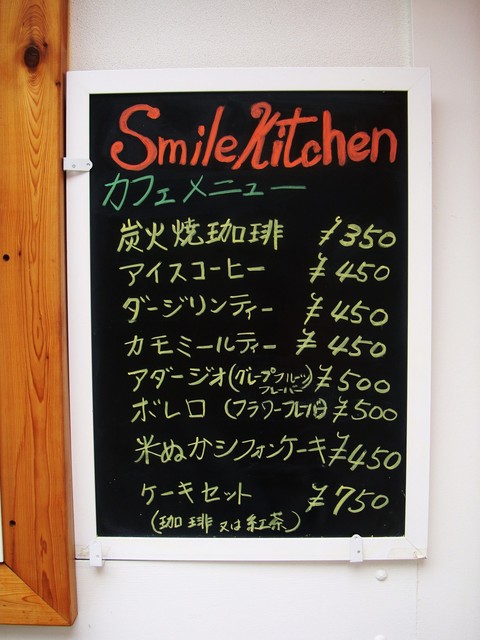 Smile Kitchen
カフェメニュー
炭火焼珈琲 ¥350
アイスコーヒー ¥450
ダージリンティー ¥450
カモミールティー ¥450
アダージオ(グレープフルーツフレーバー) ¥500
ボレロ (フラワーフレーバー) ¥500
米ぬかシフォンケーキ ¥450
ケーキセット ¥750
(珈琲又は紅茶)